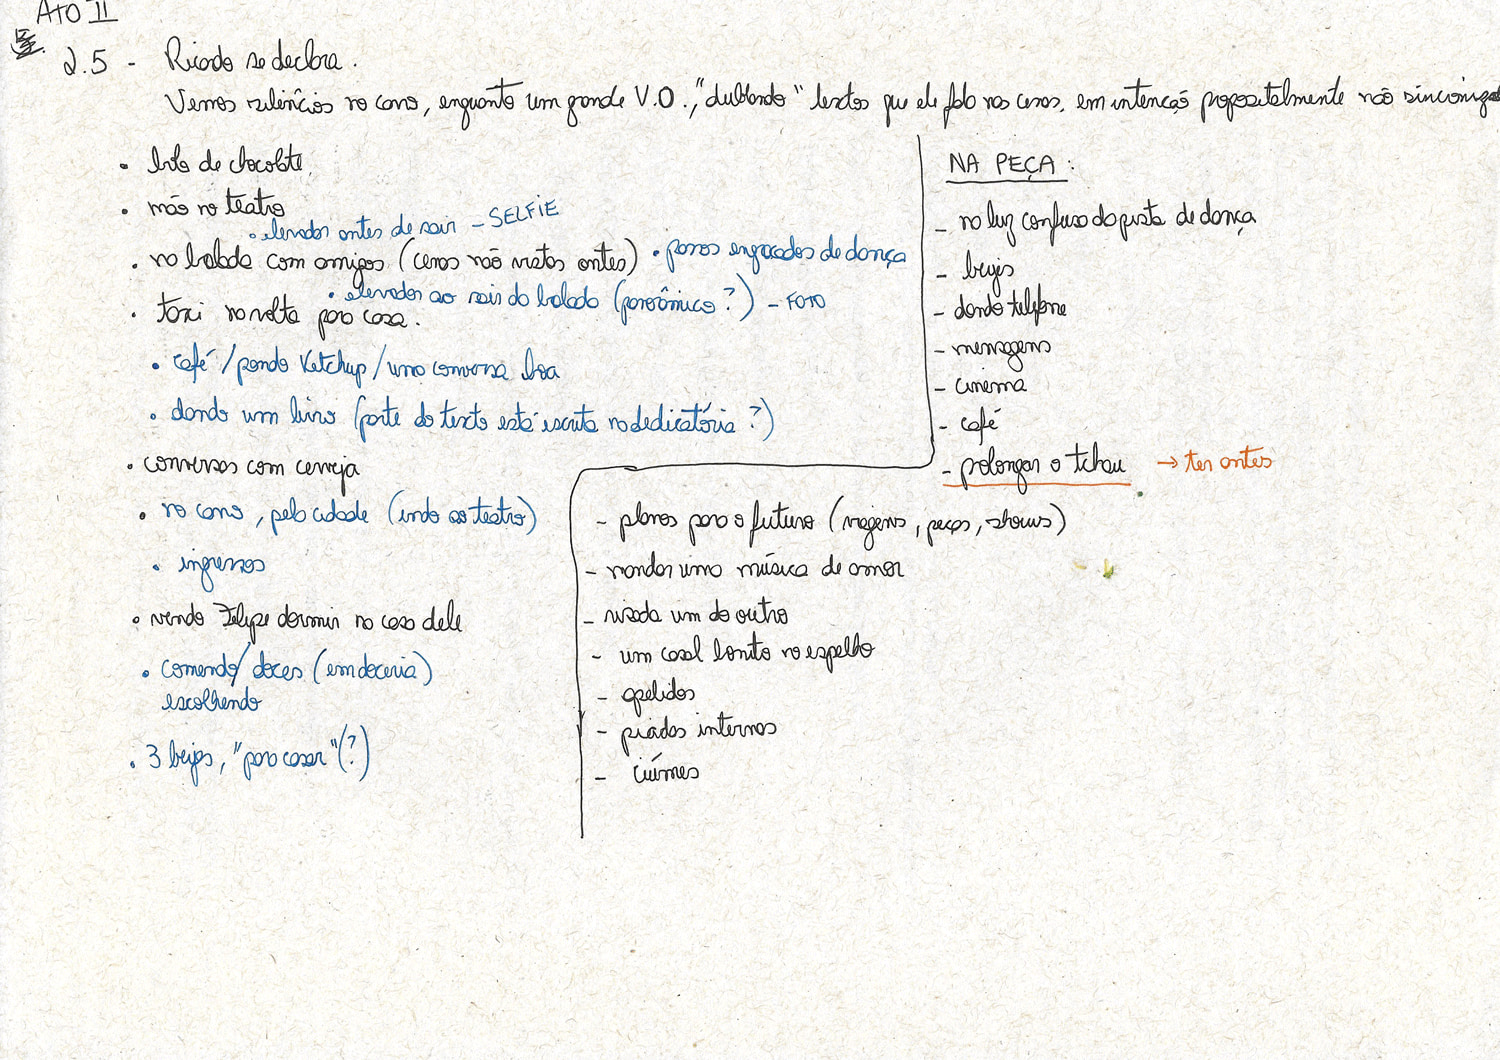 ATO II
2.5 - Ricardo se declara.
Vemos silêncios no carro, enquanto um grande V.O., "dublando" textos que ele fala nas cenas, em intenção propositalmente não sincroniza
• de chocolate
• mãos no teatro
• elevador antes de sair - SELFIE
• na balada com amigos (cenas não vistas antes) • passos engraçados de dança
• elevador ao sair da balada (panorâmico?) - FOTO
• taxi na volta para casa.
• café / pondo Ketchup / uma conversa boa
• dando um livro (parte do texto está escrita na dedicatória?)
• conversas com cerveja
• no carro, pela cidade (indo ao teatro)
• ingressos
• vendo Felipe dormir na casa dele
• comendo/ doces (em doceria)
escolhendo
• 3 beijos, "para casar" (?)
NA PEÇA:
- na luz confusa da pista de dança
- beijos
- dando telefone
- mensagens
- cinema
- café
- prolongar o tchau → ter antes
- planos para o futuro (viagens, peças, shows)
- mandar uma música de amor
- risada um do outro
- um casal bonito no espelho
- apelidos
- piadas internas
- ciúmes